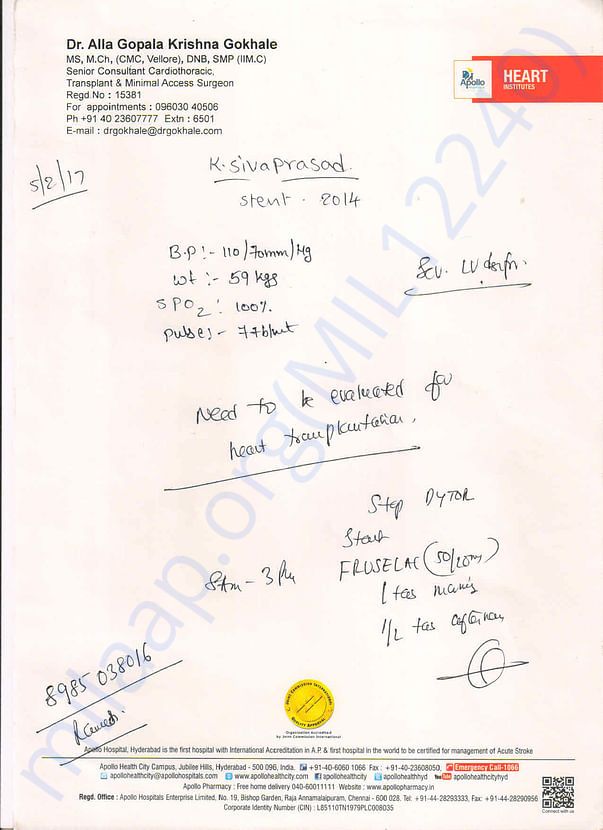 Dr. Alla Gopala Krishna Gokhale
MS, M.Ch, (CMC, Vellore), DNB, SMP (IIM.C)
Senior Consultant Cardiothoracic,
Transplant & Minimal Access Surgeon
Regd.No : 15381
For appointments : 096030 40506
Ph +91 40 23607777 Extn : 6501
E-mail : drgokhale@drgokhale.com
Apollo
HEART
INSTITUTES
5/2/17
K.Sivaprasad.
Stent . 2014
B.P :- 110/70mm/Hg
wt :- 59 kgs
SPO2 : 100%
pulse :- 77b/mt
Sev. LV dysfn.
Need to be evaluated for
heart transplantation.
Stop DYTOR
Start
FRUSELAC (50/20mg)
1 tab
1/2 tab
8Am - 3 Pm
8985 038016
Ramesh
JOINT COMMISSION INTERNATIONAL
QUALITY APPROVAL
Organization Accredited
by Joint Commission International
Apollo Hospital, Hyderabad is the first hospital with International Accreditation in A.P. & first hospital in the world to be certified for management of Acute Stroke
Apollo Health City Campus, Jubilee Hills, Hyderabad - 500 096, India. +91-40-6060 1066 Fax : +91-40-23608050. Emergency Call-1066
apollohealthcity@apollohospitals.com www.apollohealthcity.com apollohealthcity apollohealthhyd You Tube apollohealthcityhyd
Apollo Pharmacy : Free home delivery 040-60011111 Website : www.apollopharmacy.in
Regd. Office : Apollo Hospitals Enterprise Limited, No. 19, Bishop Garden, Raja Annamalaipuram, Chennai - 600 028. Tel: +91-44-28293333, Fax: +91-44-28290956
Corporate Identity Number (CIN) : L85110TN1979PLC008035
Connect with us
milaap.org(MIL12240)